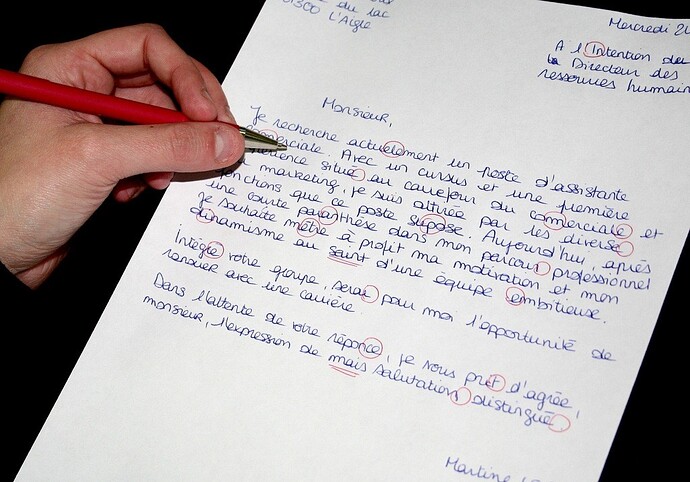 du lac
61300 L'Aigle
Mercredi 2
A l'Intention de
Directeur des
ressources humain
Monsieur,
Je recherche actuelement un poste d'assistante
comersciale. Avec un cursus et une première
située au carrefour du comerciale et
marketing, je suis attirée par les diverse
fonctions que ce poste supose. Aujourd'hui, après
une courte paranthèse dans mon parcour professionnel
je souhaite mètre à profit ma motivation et mon
dinamisme au saint d'une équipe embitieuse.
Intégré votre groupe, serai pour moi l'opportunité de
renouer avec une carrière.
Dans l'attente de votre réponce, je vous prit d'agrée,
monsieur, l'expression de mais salutation distingué
Martine